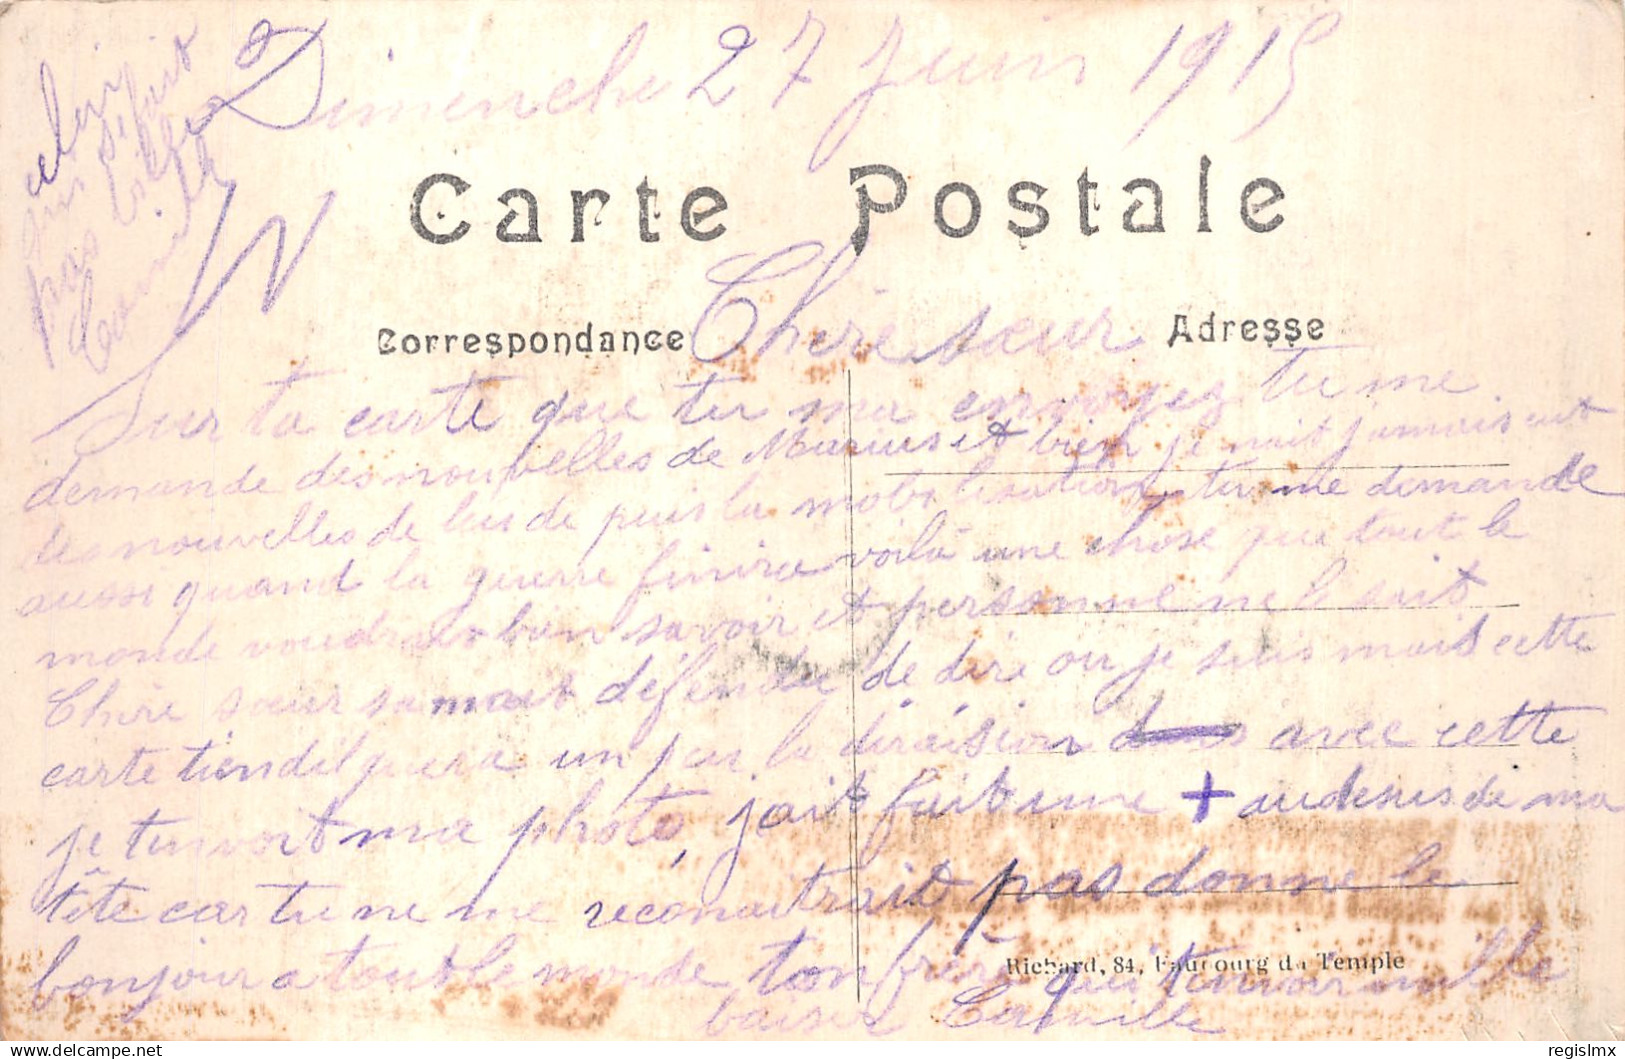 Dimenche 27 Juin 1915
celui
qui s'e fait
pas
Camille
Carte Postale
Correspondance
Adresse
Chère sœur
Sur ta carte que tu ma envoyez tu me
demande des nouvelles de Marius et bien je nait jamais eut
des nouvelles de lui de puis la mobolisation tu me demande
aussi quand la guerre finira voilà une chose que tout le
monde voudrait bien savoir et personne ne le sait
Chère sœur sa mait défendu de dire ou je suis mais cette
carte tiendiquera un peu la division avec cette
je tenvoit ma photo, jait fait une + audesus de ma
tête car tu ne me reconaitrait pas donne le
bonjour a tout le monde ton frère qui tenvoir mille
baiser Camille
Richard, 84, Faubourg du Temple
regislmx